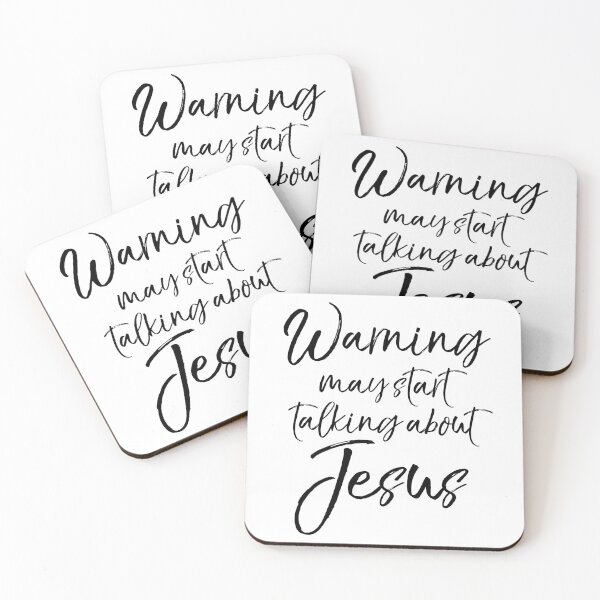 Warning
may start
talking about
Warning
may start
talking about
Jesus
Warning
may start
talking about
Warning
may start
talking about
Jesus